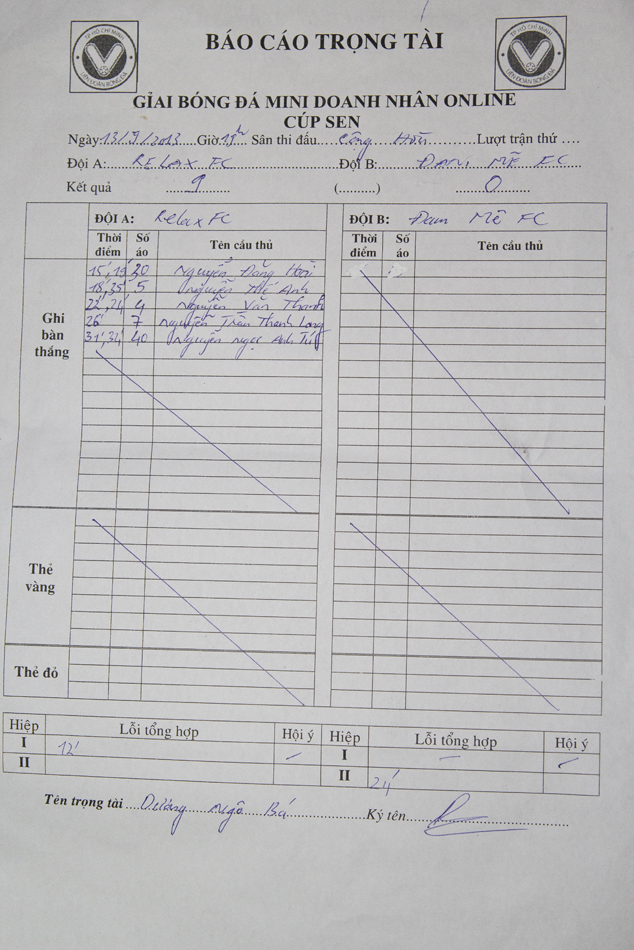 TP HỒ CHÍ MINH
LIÊN ĐOÀN BÓNG ĐÁ
BÁO CÁO TRỌNG TÀI
TP HỒ CHÍ MINH
LIÊN ĐOÀN BÓNG ĐÁ
GIẢI BÓNG ĐÁ MINI DOANH NHÂN ONLINE
CÚP SEN
Ngày 13/9/2013 Giờ 19h Sân thi đấu.... Cộng Hòa ........ Lượt trận thứ ....
Đội A: RELAX FC Đội B: ĐAM MÊ FC
Kết quả 9 (.........) 0
ĐỘI A: Relax FC ĐỘI B: Đam Mê FC
Thời điểm Số áo Tên cầu thủ Thời điểm Số áo Tên cầu thủ
Ghi bàn thắng
15', 19' 20 Nguyễn Đăng Hoài
18', 35' 5 Nguyễn Thế Anh
22', 24' 4 Nguyễn Văn Thanh
26' 7 Nguyễn Trần Thanh Long
31', 34' 40 Nguyễn Ngọc Anh Tú
Thẻ vàng
Thẻ đỏ
Hiệp Lỗi tổng hợp Hội ý Hiệp Lỗi tổng hợp Hội ý
I 12' – I – –
II II 24'
Tên trọng tài Dương Ngô Bá Ký tên